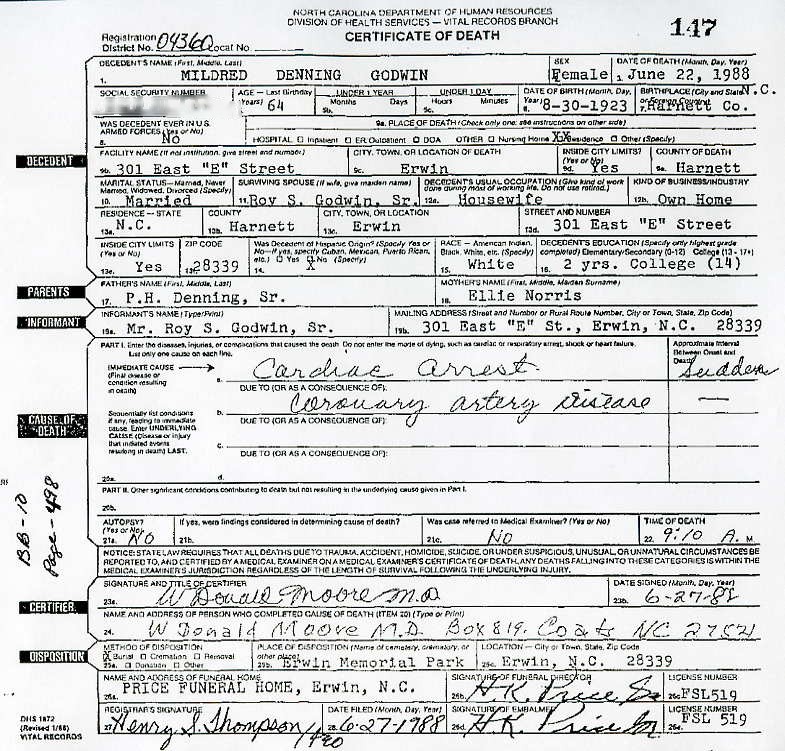 NORTH CAROLINA DEPARTMENT OF HUMAN RESOURCES
DIVISION OF HEALTH SERVICES – VITAL RECORDS BRANCH
CERTIFICATE OF DEATH
147
Registration District No. 04360 Local No.
DECEDENT'S NAME (First, Middle, Last) SEX DATE OF DEATH (Month, Day, Year)
1. MILDRED DENNING GODWIN Female June 22, 1988
SOCIAL SECURITY NUMBER AGE – Last Birthday (Years) UNDER 1 YEAR UNDER 1 DAY DATE OF BIRTH (Month, Day, Year) BIRTHPLACE (City and State or Foreign Country)
64 Months Days Hours Minutes 8-30-1923 N.C. Harnett Co.
WAS DECEDENT EVER IN U.S. ARMED FORCES? (Yes or No) 9a. PLACE OF DEATH (Check only one: see instructions on other side)
8. No HOSPITAL: Inpatient ER/Outpatient DOA OTHER: Nursing Home XX Residence Other (Specify)
DECEDENT
FACILITY NAME (If not institution, give street and number) CITY, TOWN, OR LOCATION OF DEATH INSIDE CITY LIMITS? (Yes or No) COUNTY OF DEATH
9b. 301 East "E" Street 9c. Erwin 9d. Yes 9e. Harnett
MARITAL STATUS – Married, Never Married, Widowed, Divorced (Specify) SURVIVING SPOUSE (If wife, give maiden name) DECEDENT'S USUAL OCCUPATION (Give kind of work done during most of working life. Do not use retired.) KIND OF BUSINESS/INDUSTRY
10. Married 11. Roy S. Godwin, Sr. 12a. Housewife 12b. Own Home
RESIDENCE – STATE COUNTY CITY, TOWN, OR LOCATION STREET AND NUMBER
13a. N.C. 13b. Harnett 13c. Erwin 13d. 301 East "E" Street
INSIDE CITY LIMITS (Yes or No) ZIP CODE Was Decedent of Hispanic Origin? (Specify Yes or No – If yes, specify Cuban, Mexican, Puerto Rican, etc.) Yes No (Specify) RACE – American Indian, Black, White, etc. (Specify) DECEDENT'S EDUCATION (Specify only highest grade completed) Elementary/Secondary (0-12) College (13-17+)
13e. Yes 13f. 28339 14. X 15. White 16. 2 yrs. College (14)
PARENTS
FATHER'S NAME (First, Middle, Last) MOTHER'S NAME (First, Middle, Maiden Surname)
17. P.H. Denning, Sr. 18. Ellie Norris
INFORMANT
INFORMANT'S NAME (Type/Print) MAILING ADDRESS (Street and Number or Rural Route Number, City or Town, State, Zip Code)
19a. Mr. Roy S. Godwin, Sr. 19b. 301 East "E" St., Erwin, N.C. 28339
PART I. Enter the diseases, injuries, or complications that caused the death. Do not enter the mode of dying, such as cardiac or respiratory arrest, shock or heart failure. List only one cause on each line. Approximate Interval Between Onset and Death
IMMEDIATE CAUSE (Final disease or condition resulting in death)
a. Cardiac Arrest Sudden
DUE TO (OR AS A CONSEQUENCE OF):
b. Coronary artery Disease —
Sequentially list conditions if any, leading to immediate cause. Enter UNDERLYING CAUSE (Disease or injury that initiated events resulting in death) LAST.
DUE TO (OR AS A CONSEQUENCE OF):
c.
DUE TO (OR AS A CONSEQUENCE OF):
20a. d.
CAUSE OF DEATH
PART II. Other significant conditions contributing to death but not resulting in the underlying cause given in Part I.
20b.
AUTOPSY? (Yes or No) If yes, were findings considered in determining cause of death? Was case referred to Medical Examiner? (Yes or No) TIME OF DEATH
21a. NO 21b. 21c. NO 22. 9:10 A. M.
NOTICE: STATE LAW REQUIRES THAT ALL DEATHS DUE TO TRAUMA, ACCIDENT, HOMICIDE, SUICIDE, OR UNDER SUSPICIOUS, UNUSUAL, OR UNNATURAL CIRCUMSTANCES BE
REPORTED TO, AND CERTIFIED BY A MEDICAL EXAMINER ON A MEDICAL EXAMINER'S CERTIFICATE OF DEATH, ANY DEATHS FALLING INTO THESE CATEGORIES IS WITHIN THE
MEDICAL EXAMINER'S JURISDICTION REGARDLESS OF THE LENGTH OF SURVIVAL FOLLOWING THE UNDERLYING INJURY.
BB-10
Page-498
CERTIFIER
SIGNATURE AND TITLE OF CERTIFIER DATE SIGNED (Month, Day, Year)
23a. W Donald Moore M.D 23b. 6-27-88
NAME AND ADDRESS OF PERSON WHO COMPLETED CAUSE OF DEATH (ITEM 20) (Type or Print)
24. W Donald Moore M.D. Box 819. Coats NC 27521
DISPOSITION
METHOD OF DISPOSITION PLACE OF DISPOSITION (Name of cemetery, crematory, or other place) LOCATION – City or Town, State, Zip Code
X Burial Cremation Removal
25a. Donation Other 25b. Erwin Memorial Park 25c. Erwin, N.C. 28339
NAME AND ADDRESS OF FUNERAL HOME SIGNATURE OF FUNERAL DIRECTOR LICENSE NUMBER
26a. PRICE FUNERAL HOME, Erwin, N.C. 26b. H.K. Price Sr 26c. FSL519
REGISTRAR'S SIGNATURE DATE FILED (Month, Day, Year) SIGNATURE OF EMBALMER LICENSE NUMBER
27. Henry S. Thompson 28. 6-27-1988 26d. H.K. Price Sr. 26e. FSL 519
DHS 1872
(Revised 1/88)
VITAL RECORDS